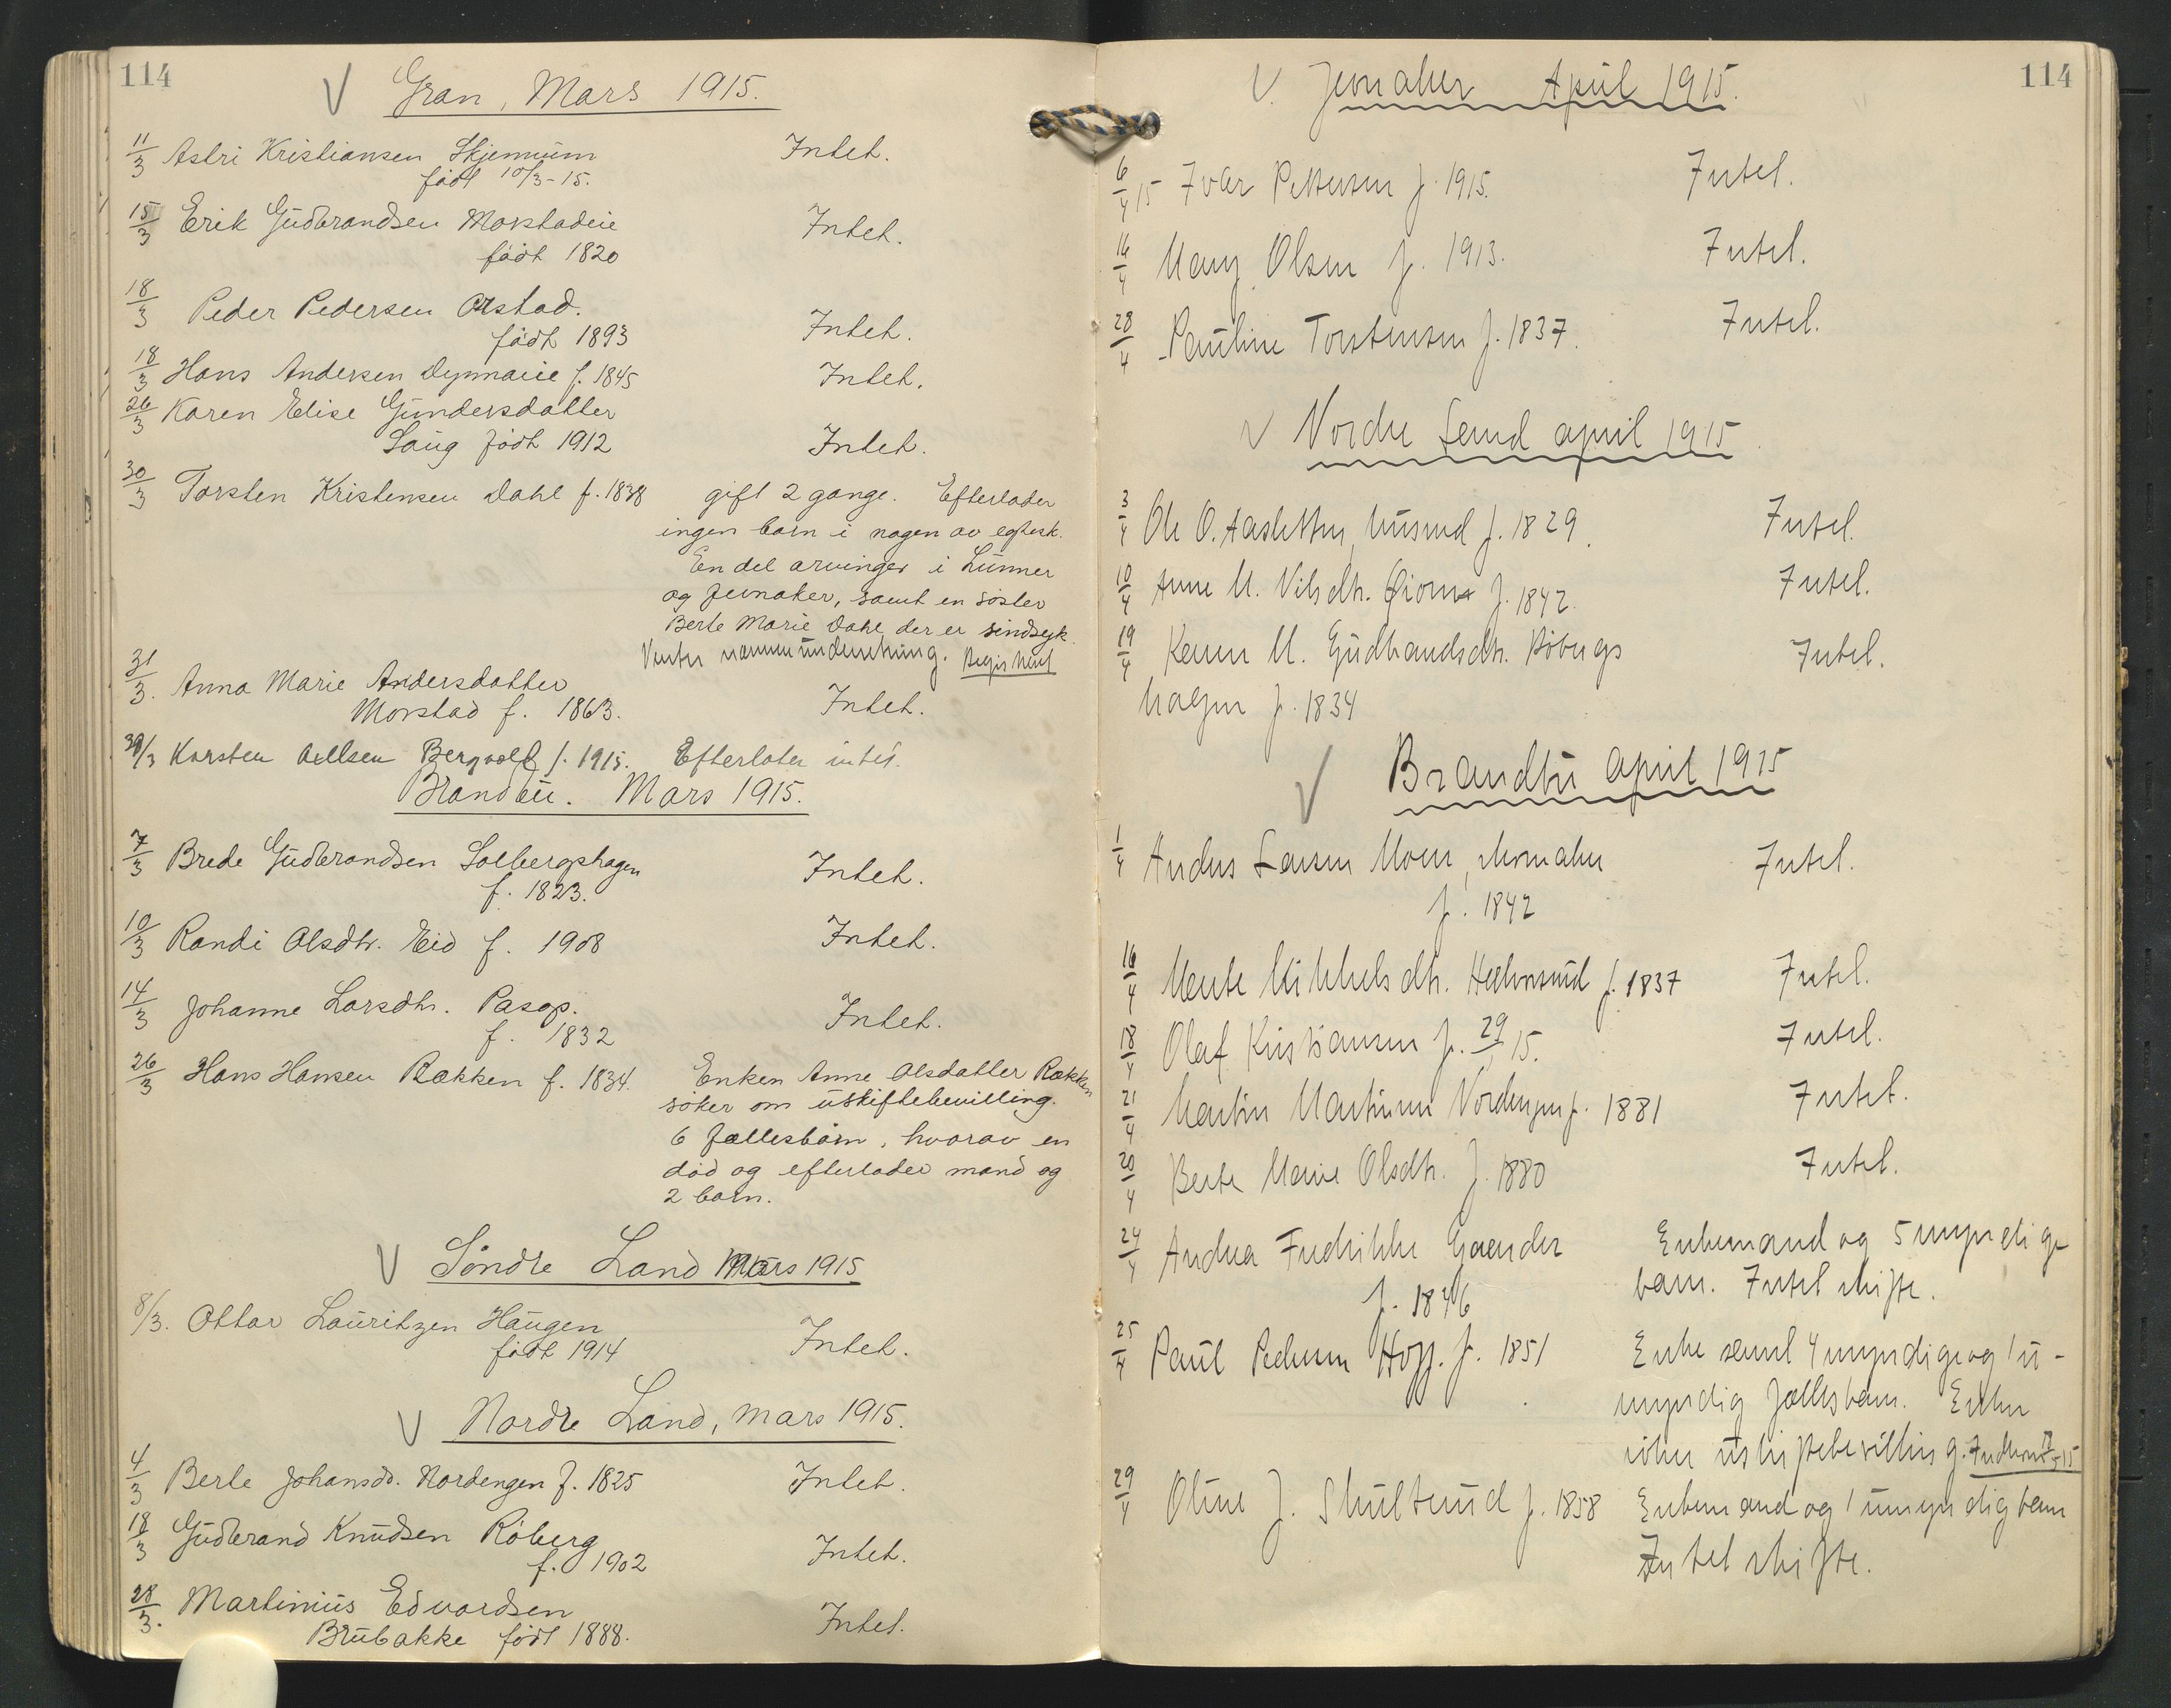 114
V Gran, Mars 1915.
11/3 Astri Kristiansen Skjennum Intet.
født 10/3-15.
15/3 Erik Gudbrandsen Morstadeie Intet.
født 1820
18/3 Peder Pedersen Orstad.
født 1893 Intet.
18/3 Hans Andersen Dynnaeie f. 1845 Intet.
26/3 Karen Elise Gundersdatter
Saug født 1912 Intet.
30/3 Torsten Kristensen Dahl f. 1838 gift 2 gange. Efterlader
ingen barn i nogen av egtesk.
En del arvinger i Lunner
og Jevnaker, samt en søster
Berte Marie Dahl der er sindsyk.
31/3. Anna Marie Andersdatter
Morstad f. 1863. Intet.
30/3 Karsten f. 1915. Efterlater intet.
Brandbu. Mars 1915.
7/3 Brede Gudbrandsen Solbergshagen Intet.
f. 1823.
10/3 Randi Olsdtr. Eid f. 1908 Intet.
14/3 Johanne Larsdtr. Pasop. Intet.
f. 1832
26/3 Hans Hansen Rækken f. 1834. Enken Anne Olsdatter Rækken
søker om uskiftebevilling.
6 fællesbarn, hvorav en
død og efterlader mand og
2 barn.
V Søndre Land Mars 1915
8/3. Ottar Lauritzen Haugen Intet.
født 1914
V Nordre Land, mars 1915.
4/3 Berte Johansd. Nordengen f. 1825 Intet.
18/3 Gudbrand Knudsen Røberg Intet.
f. 1902
28/3. Martinius Edvardsen Intet.
Brubakke født 1888.
114
V. Jevnaker April 1915.
6/4 15 Ivar Pettersen f. 1915. Intet.
16/4 Mary Olsen f. 1913. Intet.
28/4 Pauline Torstensen f. 1837. Intet.
V Nordre Land april 1915
3/4 Ole O. husmd f. 1829. Intet.
10/4 Anne M. Nilsdtr. f. 1842. Intet.
19/4 Karen M. Gudbrandsdtr. Røbergs Intet.
hagen f. 1834
V Brandbu april 1915
1/4 Anders Larsen Moen, skomaker Intet.
f. 1842
16/4 Marte Mikkelsdtr. f. 1837 Intet.
18/4 Olaf Kristiansen f. 29/1 15. Intet.
21/4 Martin Martinsen Nordengen f. 1881 Intet.
20/4 Berte Marie Olsdtr. f. 1880 Intet.
24/4 Andrea Fredrikke Grander Enkemand og 5 myndige
f. 1846 barn. Intet skifte.
25/4 Paul Pedersen Hopp. f. 1851 Enke samt 4 myndige og 1 u-
myndig fællesbarn. Enken
søker uskiftebevilling.
29/4 Oline J. f. 1858 Enkemand og 1 umyndig barn
Intet skifte.